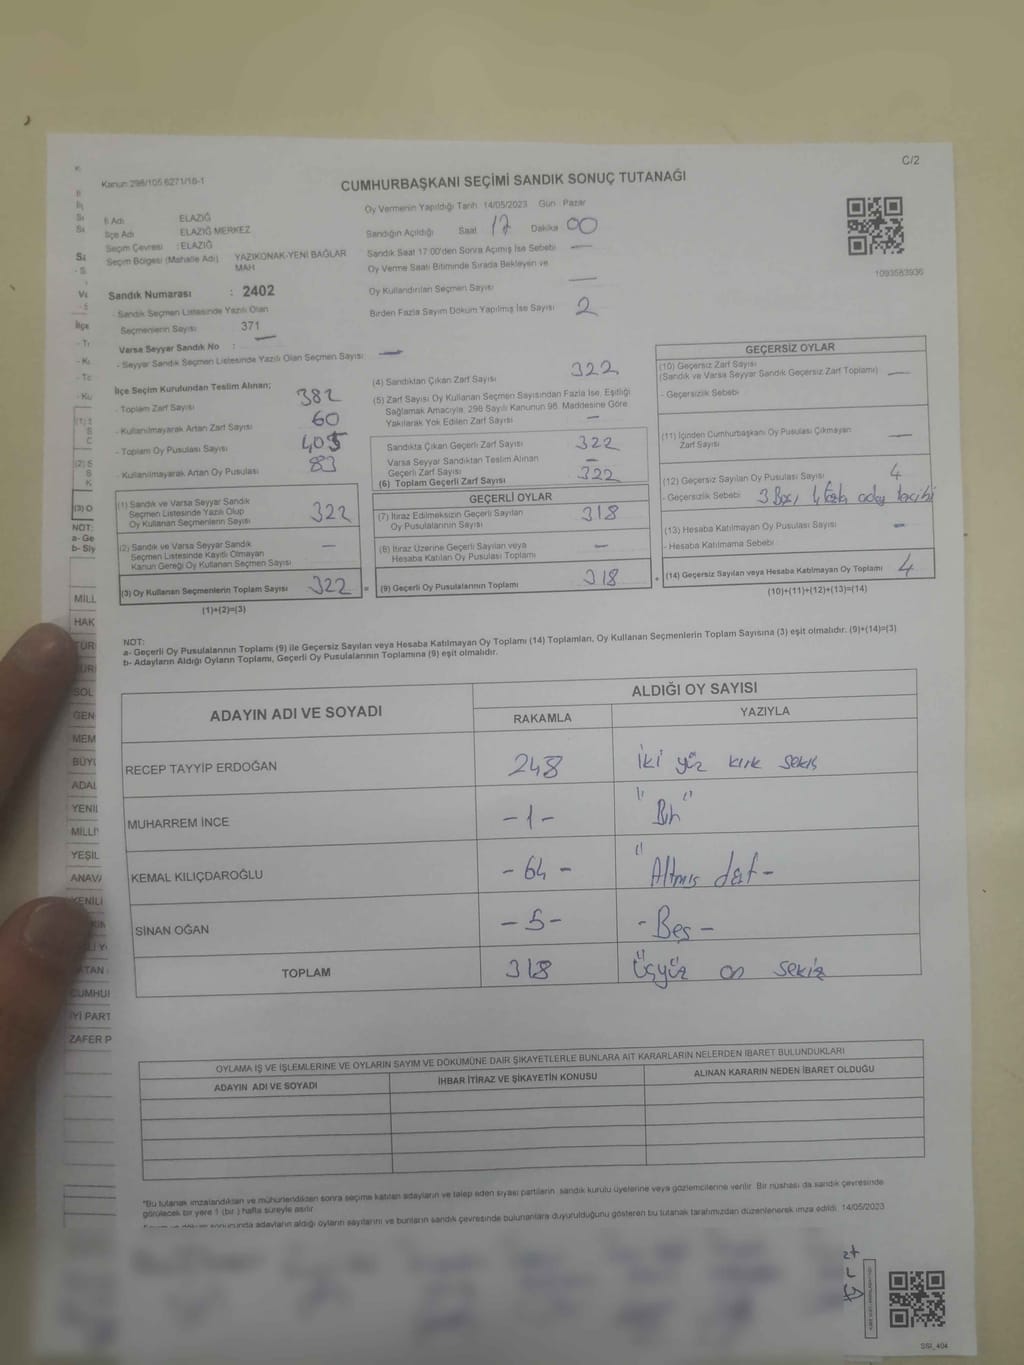 C/2
Kanun:298/105.6271/16-1
CUMHURBAŞKANI SEÇİMİ SANDIK SONUÇ TUTANAĞI
İl Adı ELAZIĞ
İlçe Adı ELAZIĞ MERKEZ
Seçim Çevresi : ELAZIĞ
Seçim Bölgesi (Mahalle Adı) YAZIKONAK-YENİ BAĞLAR MAH
Sandık Numarası : 2402
- Sandık Seçmen Listesinde Yazılı Olan
Seçmenlerin Sayısı 371
Varsa Seyyar Sandık No : —
- Seyyar Sandık Seçmen Listesinde Yazılı Olan Seçmen Sayısı —
Oy Vermenin Yapıldığı Tarih 14/05/2023 Gün Pazar
Sandığın Açıldığı Saat 17 Dakika 00
Sandık Saat 17:00'den Sonra Açılmış İse Sebebi —
Oy Verme Saati Bitiminde Sırada Bekleyen ve
Oy Kullandırılan Seçmen Sayısı —
Birden Fazla Sayım Döküm Yapılmış İse Sayısı 2
1093583936
İlçe Seçim Kurulundan Teslim Alınan;
- Toplam Zarf Sayısı 382
- Kullanılmayarak Artan Zarf Sayısı 60
- Toplam Oy Pusulası Sayısı 405
- Kullanılmayarak Artan Oy Pusulası 83
(1) Sandık ve Varsa Seyyar Sandık
Seçmen Listesinde Yazılı Olup
Oy Kullanan Seçmenlerin Sayısı 322
(2) Sandık ve Varsa Seyyar Sandık
Seçmen Listesinde Kayıtlı Olmayan
Kanun Gereği Oy Kullanan Seçmen Sayısı —
(3) Oy Kullanan Seçmenlerin Toplam Sayısı 322
(1)+(2)=(3)
(4) Sandıktan Çıkan Zarf Sayısı 322
(5) Zarf Sayısı Oy Kullanan Seçmen Sayısından Fazla İse, Eşitliği
Sağlamak Amacıyla, 298 Sayılı Kanunun 98. Maddesine Göre
Yakılarak Yok Edilen Zarf Sayısı —
Sandıkta Çıkan Geçerli Zarf Sayısı 322
Varsa Seyyar Sandıktan Teslim Alınan
Geçerli Zarf Sayısı —
(6) Toplam Geçerli Zarf Sayısı 322
GEÇERLİ OYLAR
(7) İtiraz Edilmeksizin Geçerli Sayılan
Oy Pusulalarının Sayısı 318
(8) İtiraz Üzerine Geçerli Sayılan veya
Hesaba Katılan Oy Pusulası Toplamı —
= (9) Geçerli Oy Pusulalarının Toplamı 318
GEÇERSİZ OYLAR
(10) Geçersiz Zarf Sayısı
(Sandık ve Varsa Seyyar Sandık Geçersiz Zarf Toplamı) —
- Geçersizlik Sebebi
(11) İçinden Cumhurbaşkanı Oy Pusulası Çıkmayan
Zarf Sayısı —
(12) Geçersiz Sayılan Oy Pusulası Sayısı 4
- Geçersizlik Sebebi 3 Boş, 1 fazla aday tercihi
(13) Hesaba Katılmayan Oy Pusulası Sayısı —
- Hesaba Katılmama Sebebi
+ (14) Geçersiz Sayılan veya Hesaba Katılmayan Oy Toplamı 4
(10)+(11)+(12)+(13)=(14)
NOT:
a- Geçerli Oy Pusulalarının Toplamı (9) ile Geçersiz Sayılan veya Hesaba Katılmayan Oy Toplamı (14) Toplamları, Oy Kullanan Seçmenlerin Toplam Sayısına (3) eşit olmalıdır. (9)+(14)=(3)
b- Adayların Aldığı Oyların Toplamı, Geçerli Oy Pusulalarının Toplamına (9) eşit olmalıdır.
ADAYIN ADI VE SOYADI ALDIĞI OY SAYISI
RAKAMLA YAZIYLA
RECEP TAYYİP ERDOĞAN 248 iki yüz kırk sekiz
MUHARREM İNCE -1- "Bir"
KEMAL KILIÇDAROĞLU -64- "Altmış dört-
SİNAN OĞAN -5- -Beş-
TOPLAM 318 üçyüz on sekiz
OYLAMA İŞ VE İŞLEMLERİNE VE OYLARIN SAYIM VE DÖKÜMÜNE DAİR ŞİKAYETLERLE BUNLARA AİT KARARLARIN NELERDEN İBARET BULUNDUKLARI
ADAYIN ADI VE SOYADI İHBAR İTİRAZ VE ŞİKAYETİN KONUSU ALINAN KARARIN NEDEN İBARET OLDUĞU
"Bu tutanak imzalandıktan ve mühürlendikten sonra seçime katılan adayların ve talep eden siyasi partilerin, sandık kurulu üyelerine veya gözlemcilerine verilir. Bir nüshası da sandık çevresinde
görülecek bir yere 1 (bir) hafta süreyle asılır.
sonucunda adayların aldığı oyların sayılarını ve bunların sandık çevresinde bulunanlara duyurulduğunu gösteren bu tutanak tarafımızdan düzenlenerek imza edildi. 14/05/2023
SSI_404
MİLL
HAK
TÜRİ
SOL
GEN
MEM
BÜYÜ
ADAL
YENİ
MİLLİ
YEŞİL
ANAVA
YENİLİ
CUMHU
İYİ PART
ZAFER P